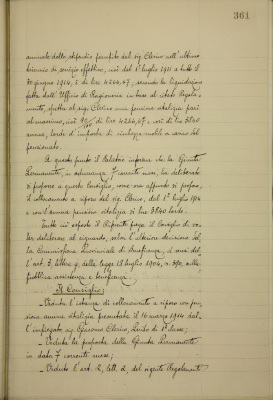 361
annuale dello stipendio percepito dal sig. Clerino nell'ultimo
biennio di servizio effettivo, cioè dal 1° luglio 1911 a tutto il
30 giugno 1914, è di lire 4266,67, secondo la liquidazione
fatta dall'Ufficio di Ragioneria in base al citato Regola-
mento, spetta al sig. Clerino una pensione vitalizia pari
al massimo, cioè di lire 4266,67, cioè di lire 3840
annue, lorde d'imposta di ricchezza mobile a carico del
pensionato.
A questo punto il Relatore informa che la Giunta
Permanente, in adunanza 7 corrente mese, ha deliberato
di proporre a questo Consiglio, come ora appunto si propone,
il collocamento a riposo del sig. Clerino, dal 1° luglio 1914
e con l'annua pensione vitalizia di lire 3840 lorde.
Tutto ciò esposto il Riferente prega il Consiglio di vo-
ler deliberare al riguardo, salva l'ulteriore decisione del-
la Commissione Provinciale di Beneficenza, ai sensi del-
l'art. 3, lettera g, della legge 18 luglio 1904, n. 390, sulla
pubblica assistenza e beneficenza.
Il Consiglio:
- Veduta l'istanza di collocamento a riposo con pen-
sione annua vitalizia presentata il 16 marzo 1914 dal-
l'impiegato sig. Giacomo Clerino, Guido di 1ª classe;
- Veduta la proposta della Giunta Permanente
in data 7 corrente mese;
- Veduto l'art. 2, lett. a, del vigente Regolamento